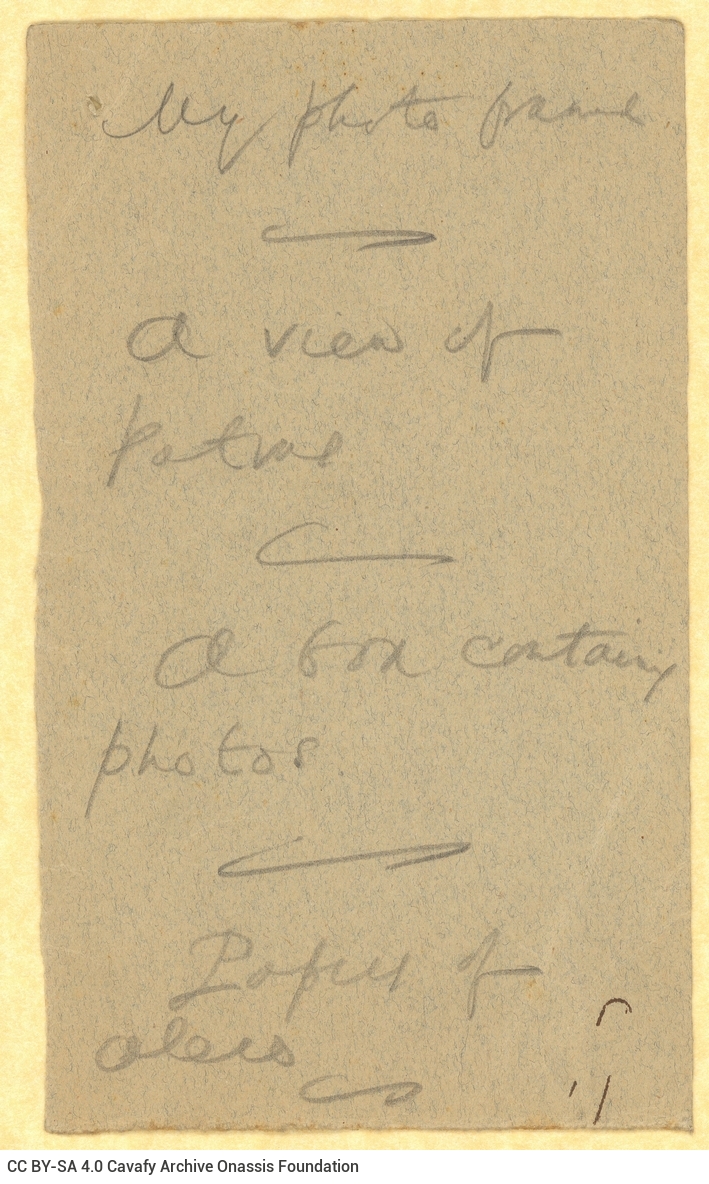 My photo frame.
A view of
Patras
A box containing
photos.
Papers of
CC BY-SA 4.0 Cavafy Archive Onassis Foundation